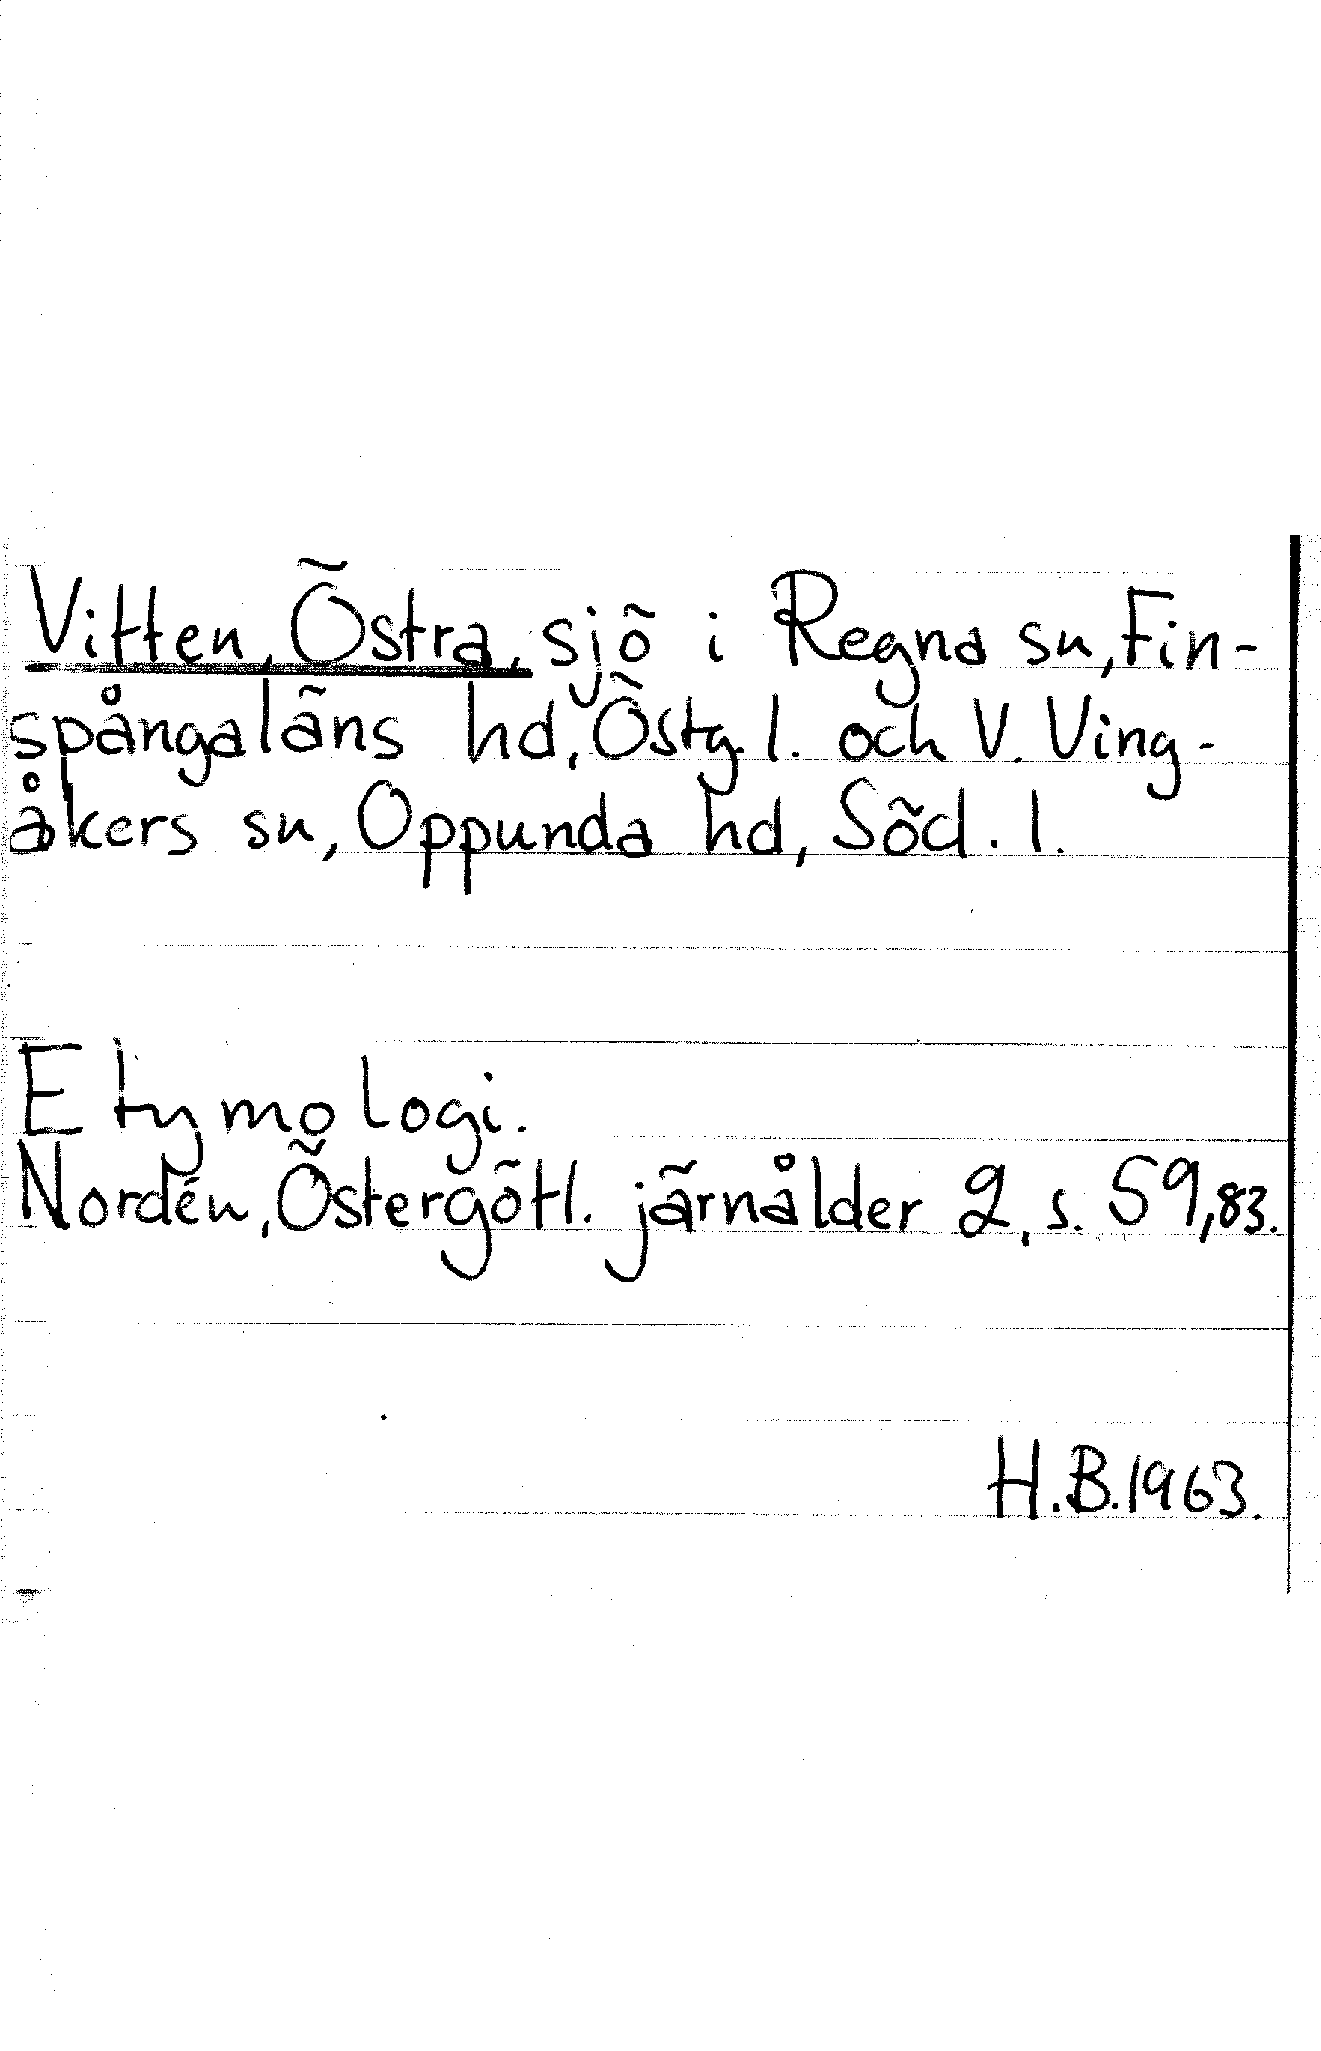 Vitten, Östra, sjö i Regna sn, Fin-
spångaläns hd, Östg. l. och V. Ving-
åkers sn, Oppunda hd, Söd. l.
Etymologi.
Nordén, Östergötl. järnålder 2, s. 59, 83.
H.B. 1963.